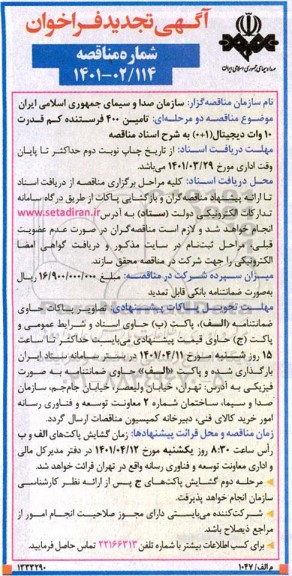 آگهی تجدید فراخوان
شماره مناقصه
۱۴۰۱-۰۲/۱۱۴
صدا و سیمای جمهوری اسلامی ایران
نام سازمان مناقصه‌گزار: سازمان صدا و سیمای جمهوری اسلامی ایران
موضوع مناقصه دو مرحله‌ای: تامین ۴۰۰ فرستنده کم قدرت
۱۰ وات دیجیتال(۱+۰) به شرح اسناد مناقصه
مهلت دریافت اسناد: از تاریخ چاپ نوبت دوم حداکثر تا پایان
وقت اداری مورخ ۱۴۰۱/۰۳/۲۹ می‌باشد.
محل دریافت اسناد: کلیه مراحل برگزاری مناقصه از دریافت اسناد
تا ارائه پیشنهاد مناقصه‌گران و بازگشایی پاکات از طریق درگاه سامانه
تدارکات الکترونیکی دولت (ستاد) به آدرس www.setadiran.ir
انجام خواهد شد و لازم است مناقصه‌گران در صورت عدم عضویت
قبلی، مراحل ثبت‌نام در سایت مذکور و دریافت گواهی امضا
الکترونیکی را جهت شرکت در مناقصه محقق سازند.
میزان سپرده شرکت در مناقصه: مبلغ ۱۶/۹۰۰/۰۰۰/۰۰۰ ریال
به‌صورت ضمانتنامه بانکی قابل تمدید
مهلت تحویل پاکات پیشنهادی: تصاویر پاکات حاوی
ضمانتنامه (الف)، پاکت (ب) حاوی اسناد و شرایط عمومی و
پاکت (ج) حاوی قیمت پیشنهادی می‌بایست حداکثر تا ساعت
۱۵ روز شنبه مورخ ۱۴۰۱/۰۴/۱۱ در بستر سامانه ستاد ایران
بارگذاری شده و پاکت «الف» حاوی ضمانتنامه به صورت
فیزیکی به آدرس: تهران، خیابان ولیعصر، خیابان جام‌جم، سازمان
صدا و سیما، ساختمان شماره ۲ معاونت توسعه و فناوری رسانه
امور خرید کالای فنی، دبیرخانه کمیسیون مناقصات ارسال گردد.
زمان مناقصه و محل قرائت پیشنهادها: زمان گشایش پاکت‌های الف و ب
رأس ساعت ۸:۳۰ روز یکشنبه مورخ ۱۴۰۱/۰۴/۱۲ در دفتر مدیرکل مالی
و اداری معاونت توسعه و فناوری رسانه واقع در تهران قرائت خواهد شد.
مرحله دوم گشایش پاکت‌های ج پس از ارائه نظر کارشناسی
سازمان انجام خواهد پذیرفت.
شرکت‌کننده می‌بایستی دارای مجوز صلاحیت انجام امور از
مراجع ذیصلاح باشد.
برای کسب اطلاعات بیشتر با شماره تلفن ۲۲۱۶۶۳۱۳ تماس حاصل فرمایید.
م الف/ ۱۰۴۷
۱۳۳۳۲۹۰